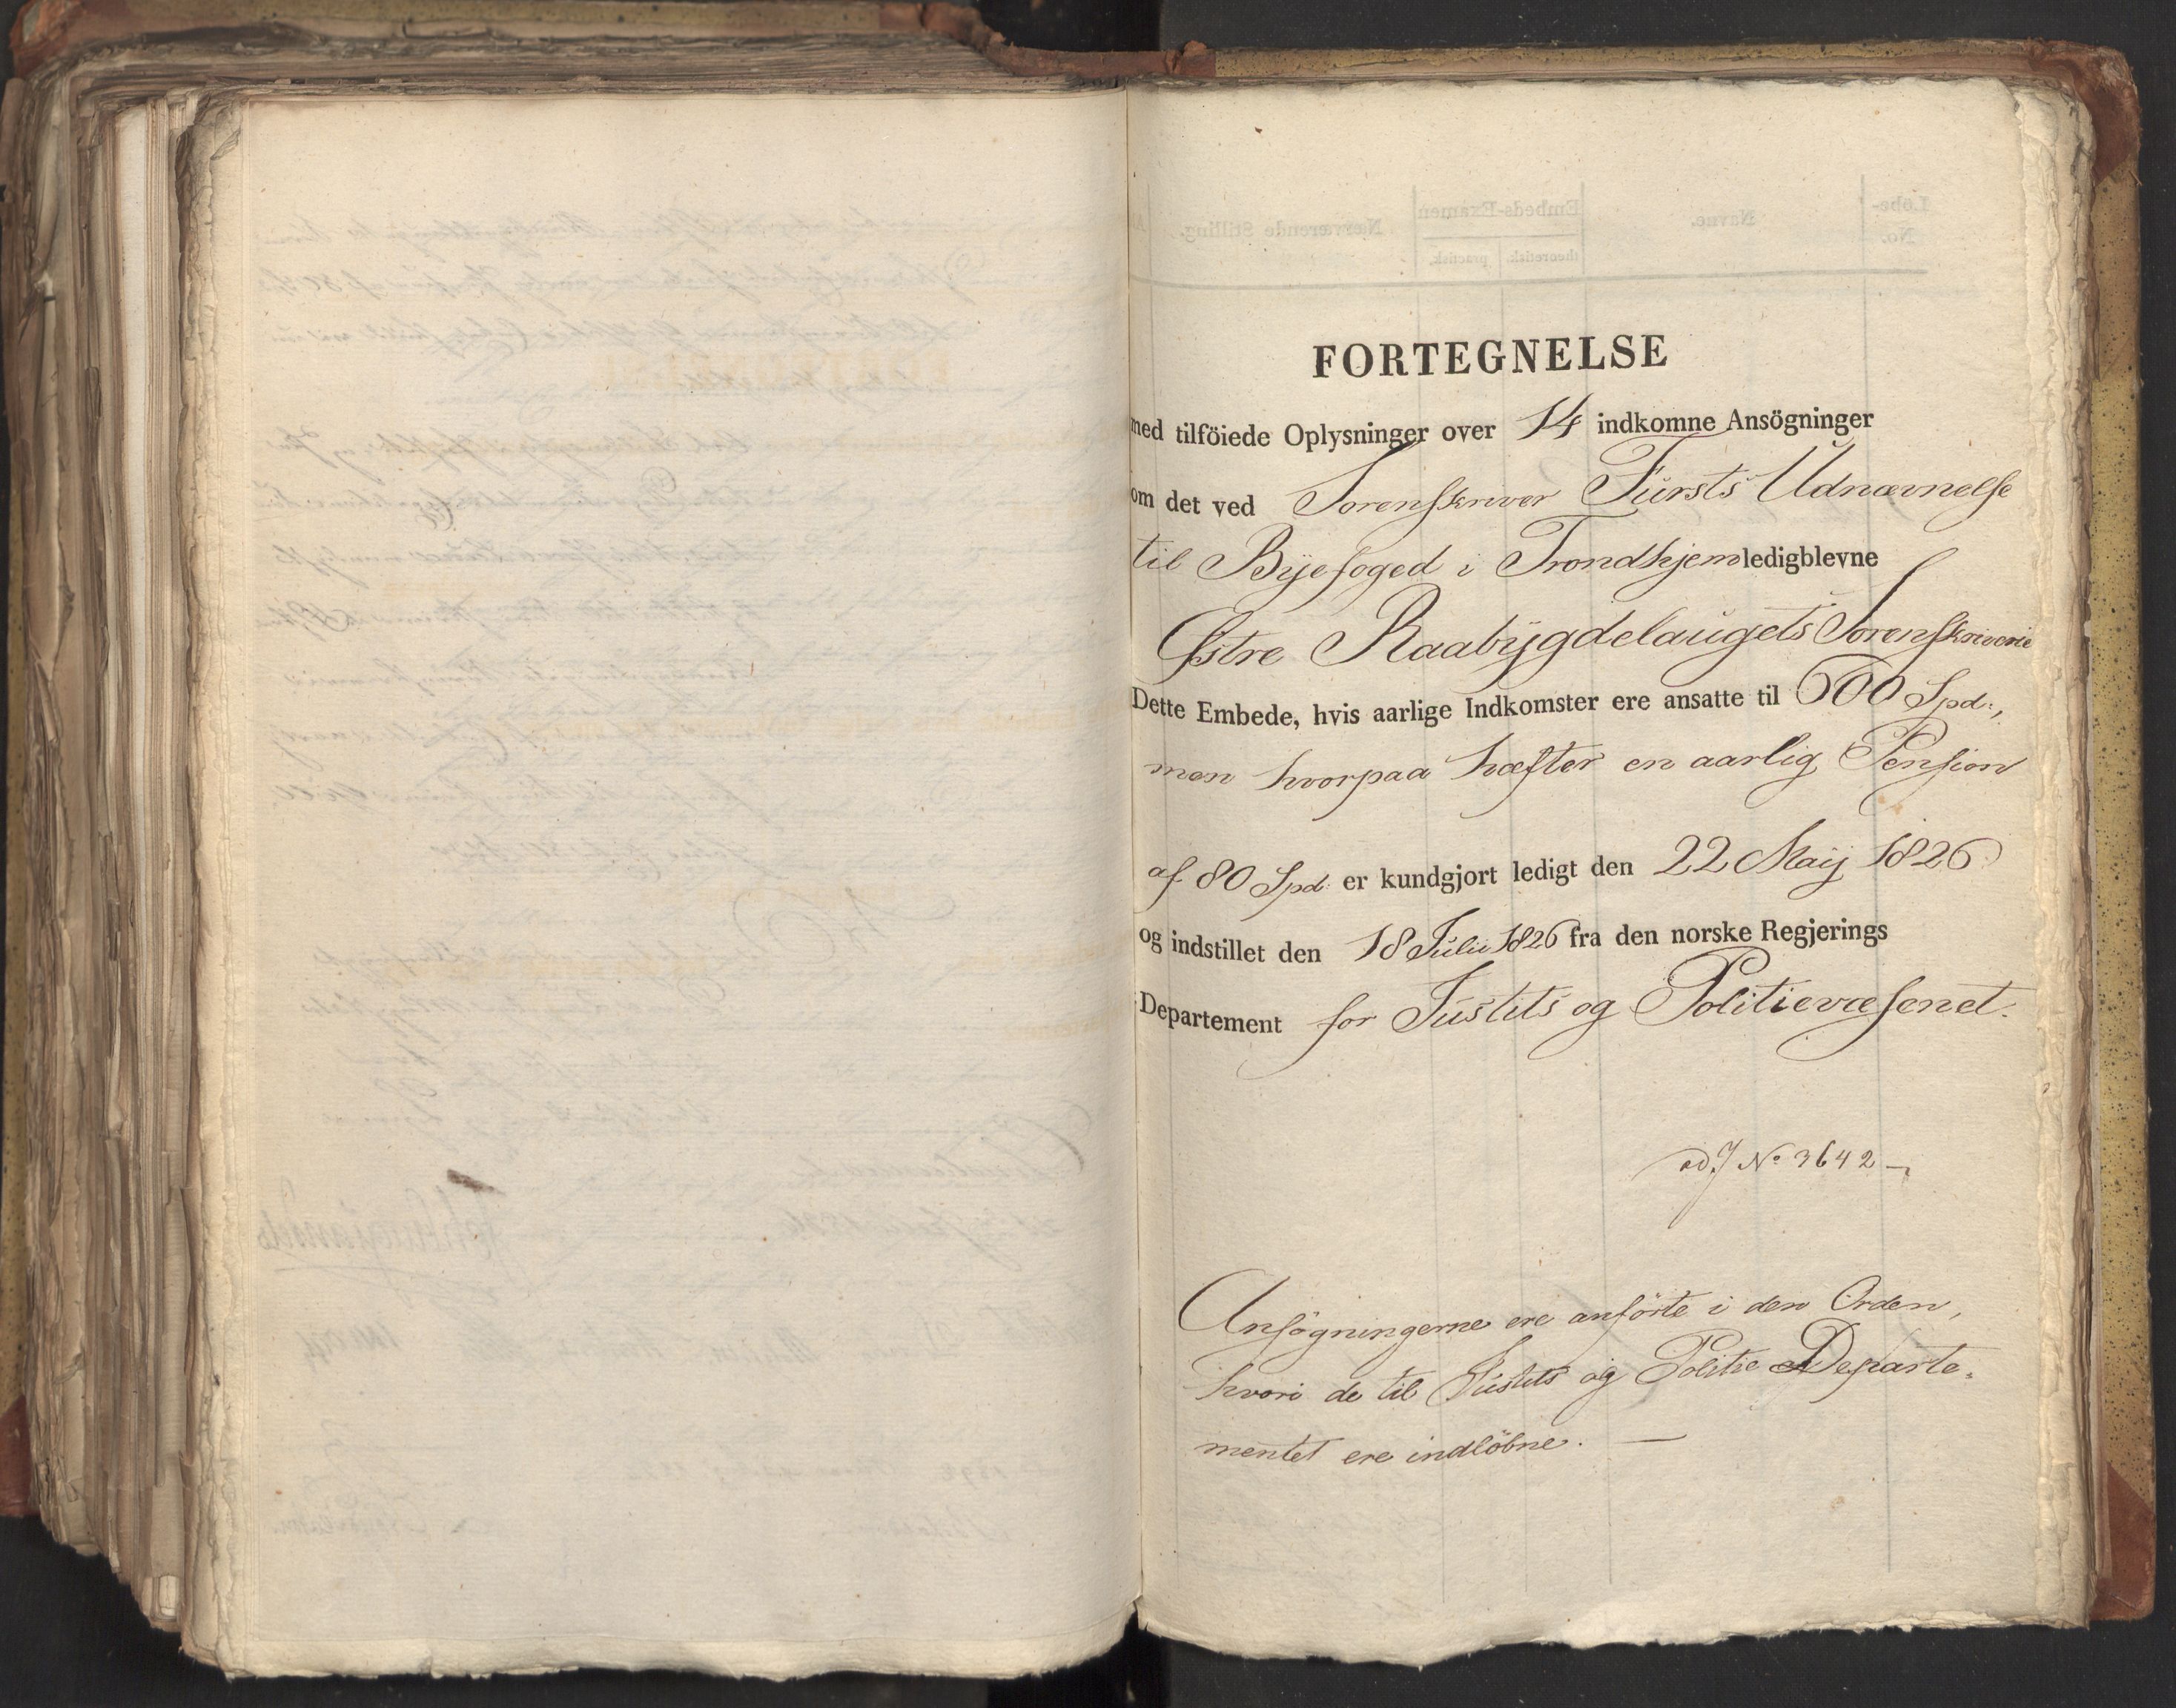 FORTEGNELSE
med tilföiede Oplysninger over 14 indkomne Ansögninger
om det ved Sorenskriver Fürsts Udnævnelse
til Byefoged i Trondhjem ledigblevne
Østre Raabygdelaugets Sorenskriverie
Dette Embede, hvis aarlige Indkomster ere ansatte til 600 Spd:,
men hvorpaa hæfter en aarlig Pension
af 80 Spd: er kundgjort ledigt den 22 Maij 1826
og indstillet den 18 Julii 1826 fra den norske Regjerings
Departement for Justits og Politievæsenet.
ad J No 3642
Ansøgningerne ere anførte i den Orden,
hvori de til Justits og Politie Departe-
mentet ere indløbne. —